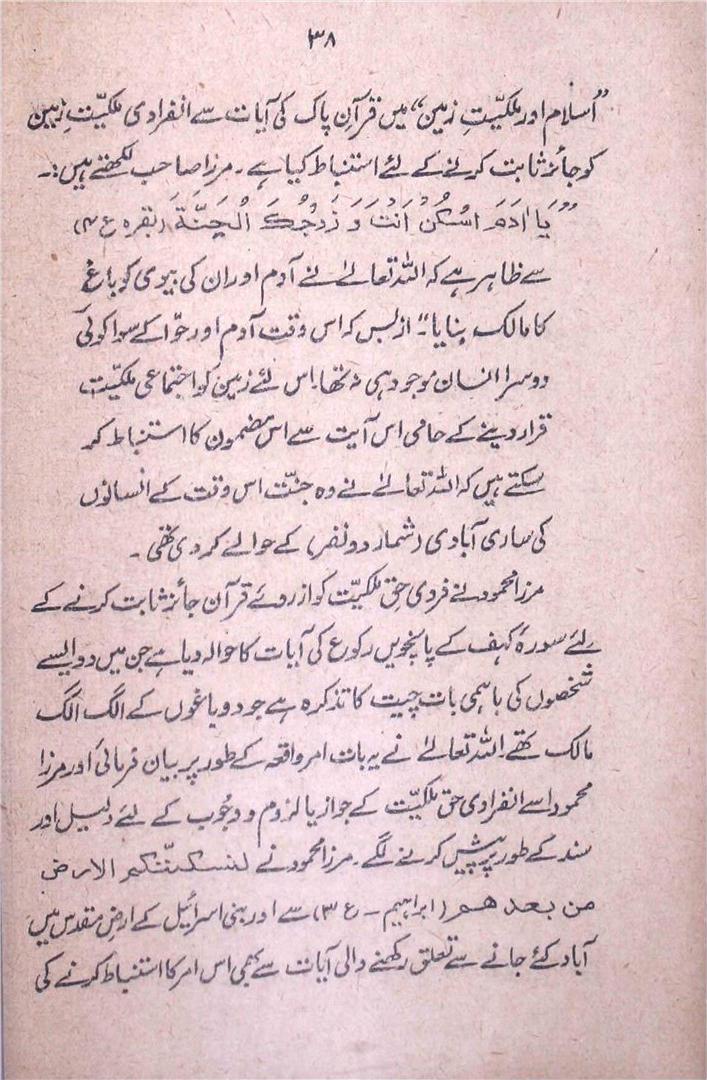 ۳۸
”اسلام اور ملکیّتِ زمین“ میں قرآنِ پاک کی آیات سے انفرادی ملکیّتِ زمین
کو جائز ثابت کرنے کے لئے استنباط کیا ہے۔ مرزا صاحب لکھتے ہیں:۔
”یَا اٰدَمَ اسْکُنْ اَنْتَ وَ زَوْجُکَ الْجَنَّۃَ (بقرہ ع ۴)
سے ظاہر ہے کہ اللہ تعالےٰ نے آدم اور ان کی بیوی کو باغ
کا مالک بنایا“ ازبس کہ اس وقت آدم اور حوّا کے سوا کوئی
دوسرا انسان موجود ہی نہ تھا۔ اس لئے زمین کو اجتماعی ملکیّت
قرار دینے کے حامی اس آیت سے اس مضمون کا استنباط کر
سکتے ہیں کہ اللہ تعالےٰ نے وہ جنّت اس وقت کے انسانوں
کی ساری آبادی (شمار دو نفر) کے حوالے کر دی تھی۔
مرزا محمود نے فردی حقِ ملکیّت کو از روئے قرآن جائز ثابت کرنے کے
لئے سورۂ کہف کے پانچویں رکوع کی آیات کا حوالہ دیا ہے جن میں دو ایسے
شخصوں کی باہمی بات چیت کا تذکرہ ہے جو دو باغوں کے الگ الگ
مالک تھے۔ اللہ تعالےٰ نے یہ بات امر واقعہ کے طور پر بیان فرمائی اور مرزا
محمود اسے انفرادی حق ملکیّت کے جواز یا لزوم و وجُوب کے لئے دلیل اور
سند کے طور پر پیش کرنے لگے۔ مرزا محمود نے لنسکننّکم الارض
من بعد ھم (ابراہیم ۔ ع ۳) سے اور بنی اسرائیل کے ارضِ مقدس میں
آباد کئے جانے سے تعلق رکھنے والی آیات سے بھی اس امر کا استنباط کرنے کی